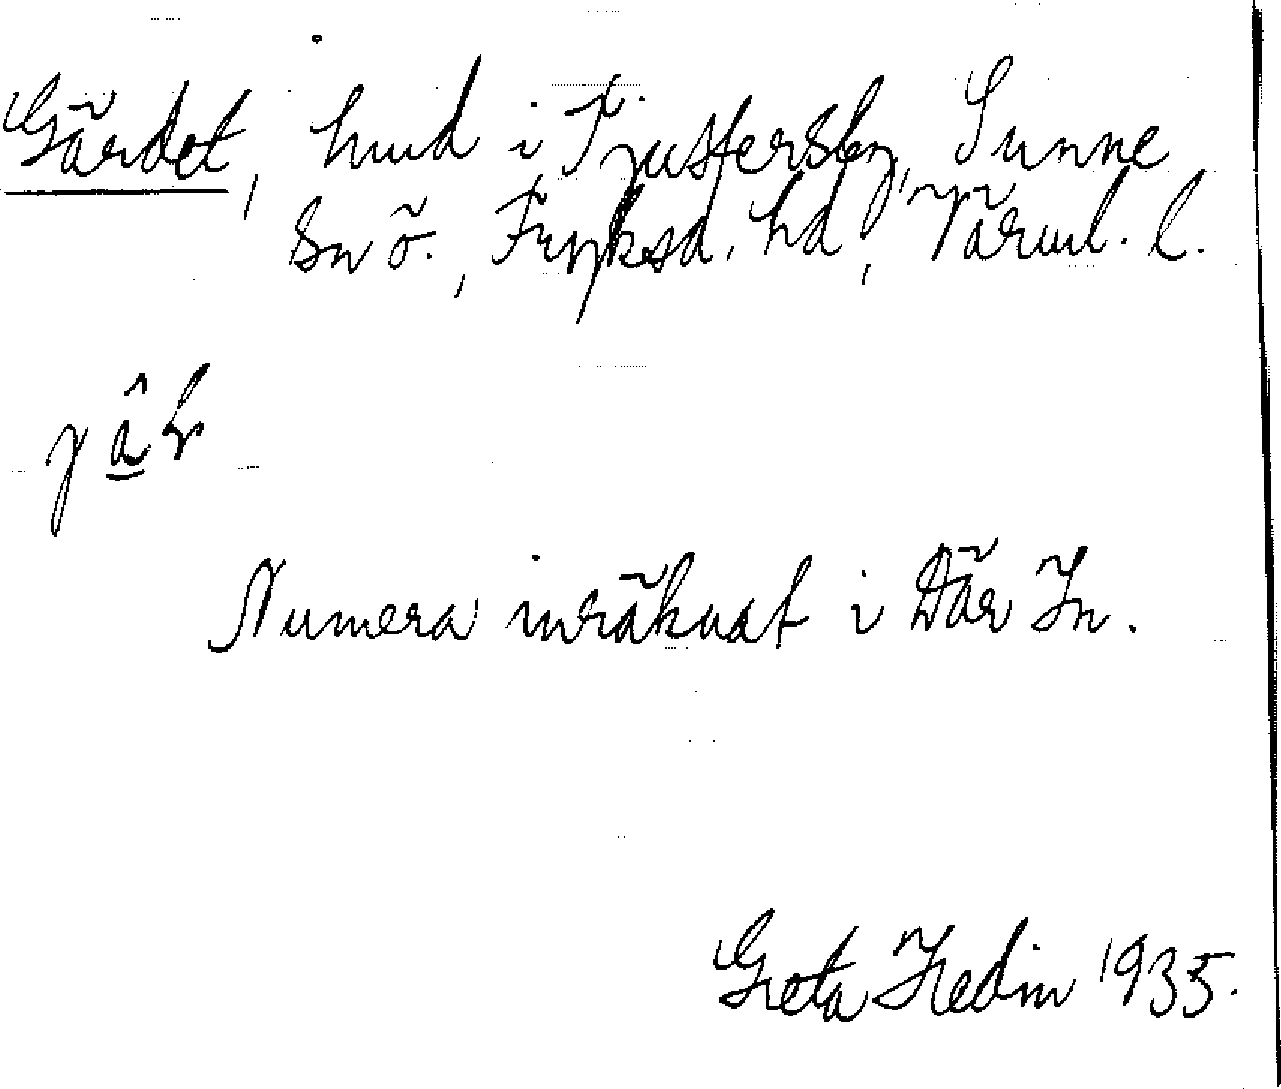 Gärdet, hmd i Tjustersby, Sunne
sn ö., Fryksd. hd, Värml. l.
Numera inräknat i Där In.
Greta Hedin 1935.